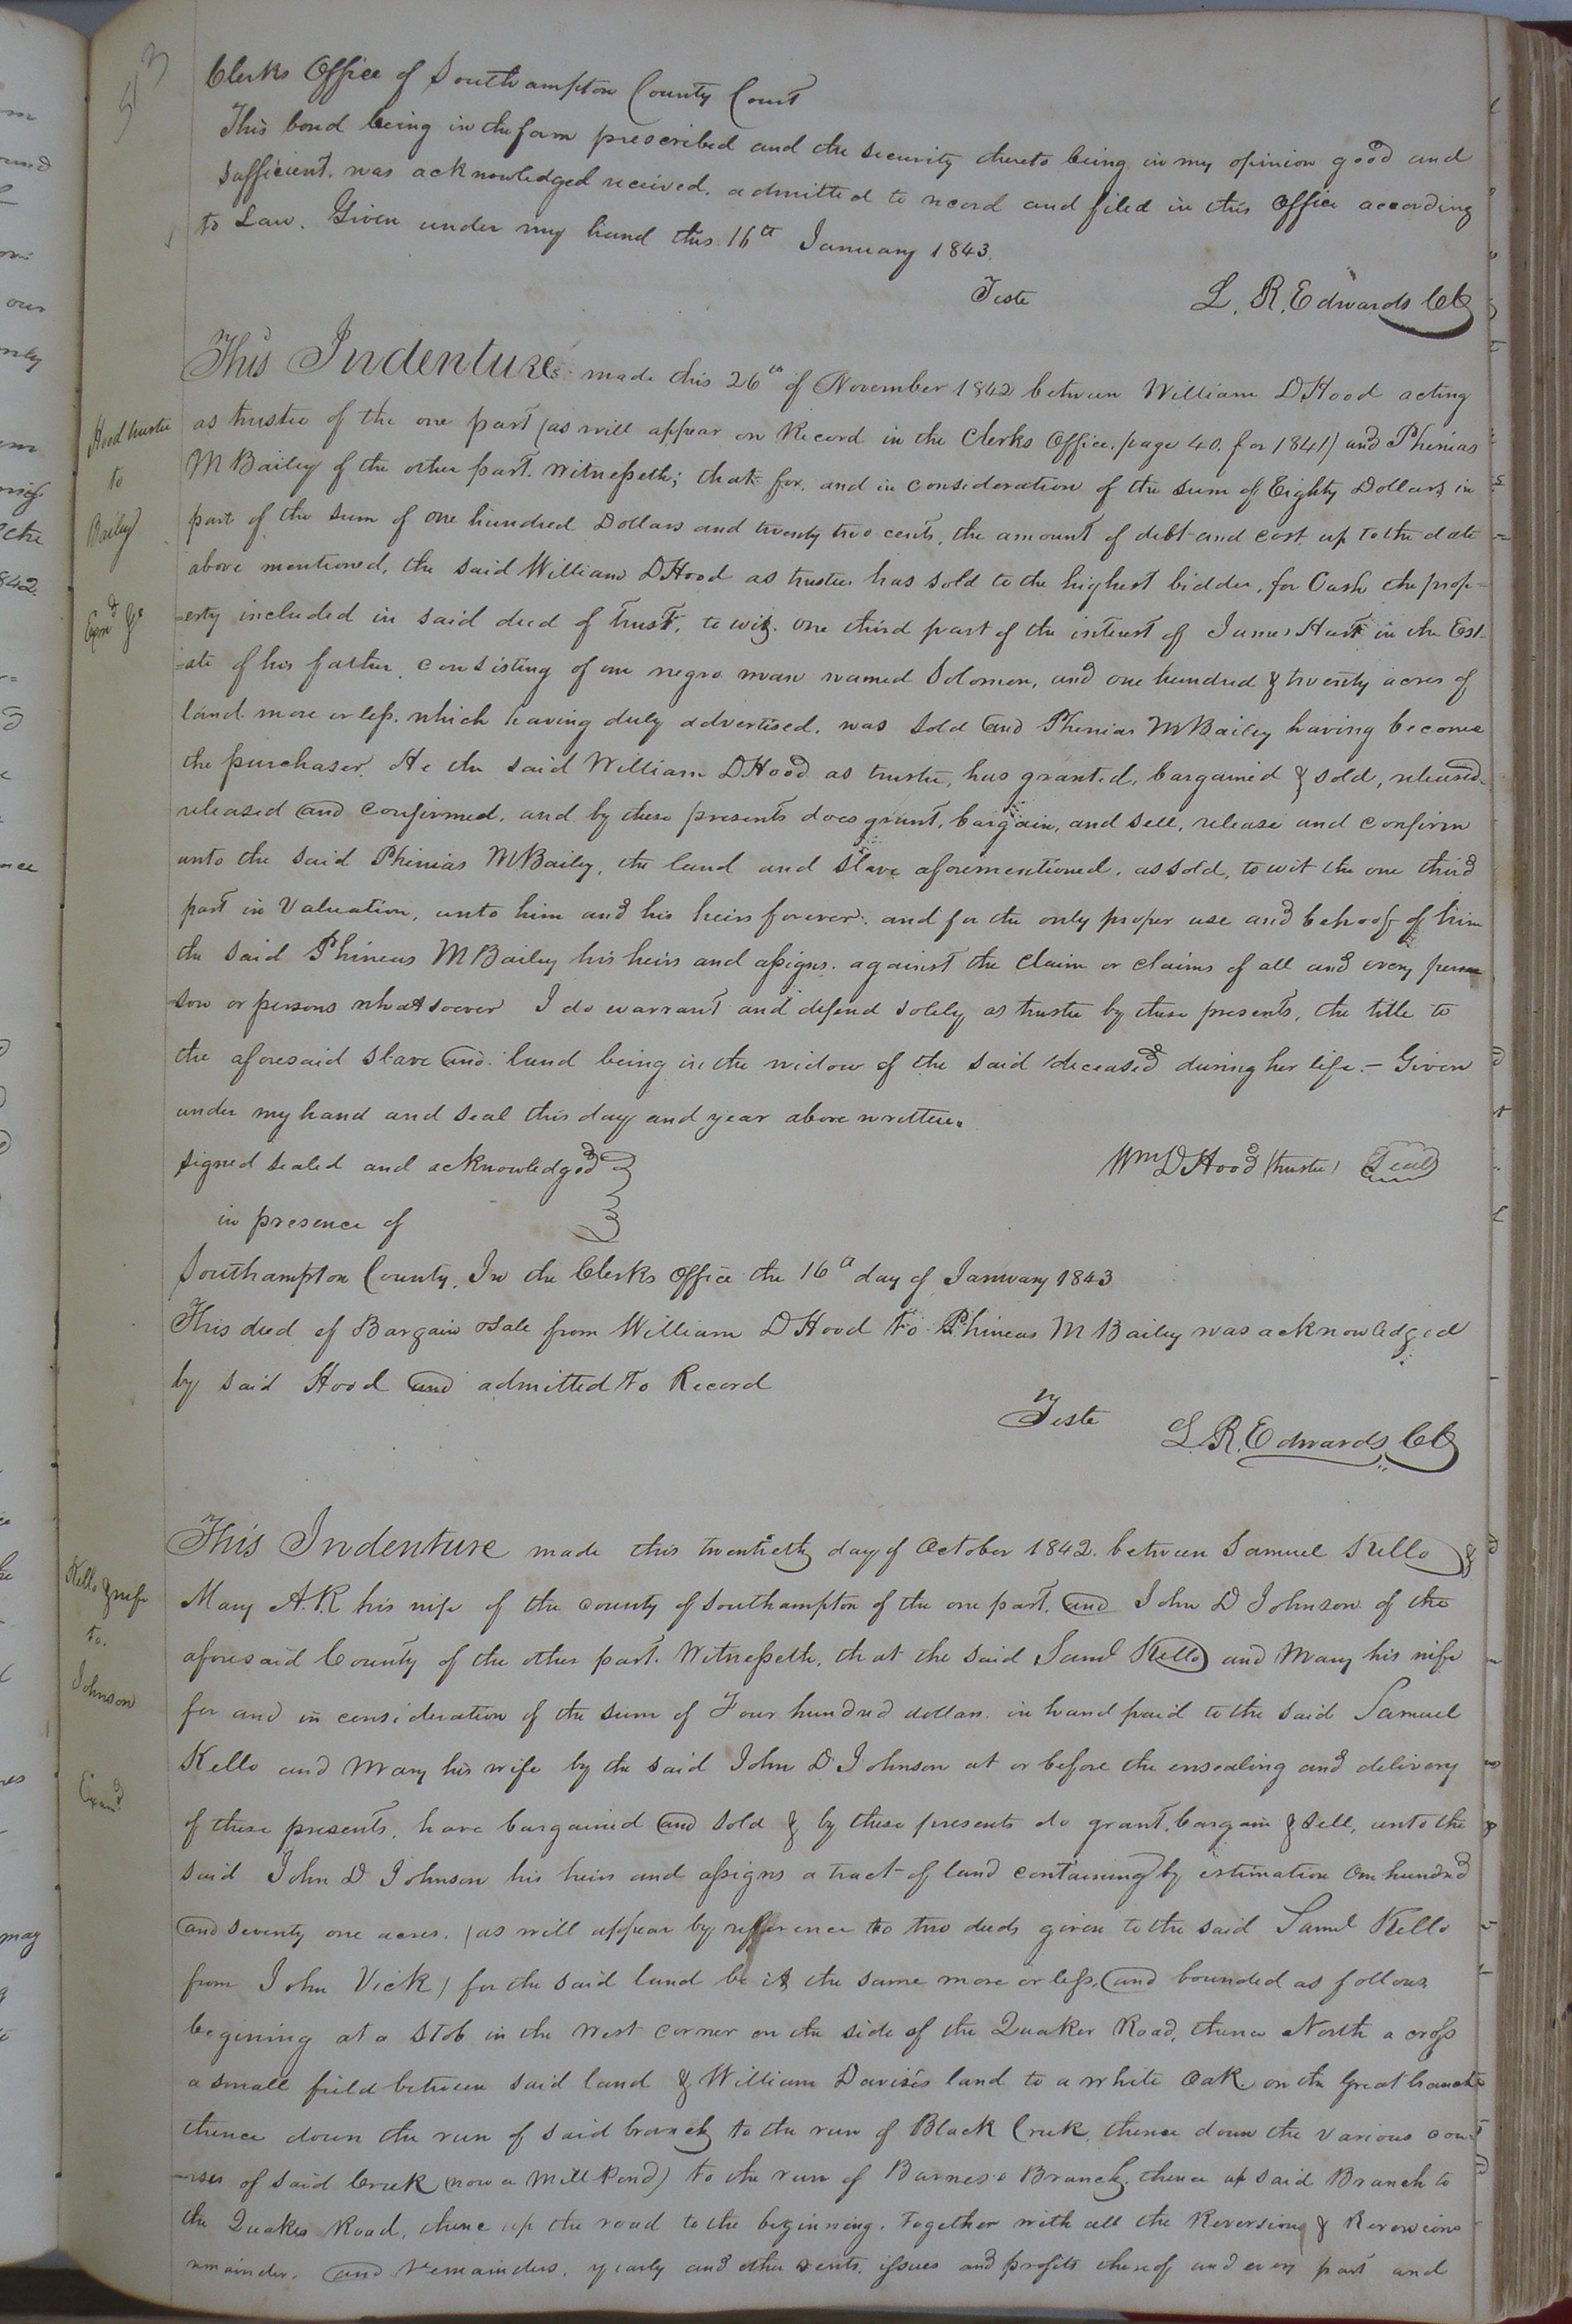 53
Clerks Office of Southampton County Court
This bond being in the form prescribed and the security thereto being in my opinion good and
sufficient. was acknowledged received. admitted to record and filed in this Office according
to Law. Given under my hand this 16th January 1843.
Teste L. R. Edwards Clk
This Indenture made this 26th of November 1842 between William D Hood acting
Hood trustee
to
Bailey
Exmd &c
as trustee of the one part (as will appear on Record in the Clerks Office, page 40. for 1841) and Phinias
M Bailey of the other part. Witnesseth; that for, and in consideration of the sum of Eighty Dollars in
part of the sum of one hundred Dollars and twenty two cents, the amount of debt and cost up to the date
above mentioned, the said William D Hood as trustee has sold to the highest bidder, for Cash the prop-
-erty included in said deed of trust, to wit. one third part of the interest of James Hart in the Est-
-ate of his father. consisting of one negro man named Solomon, and one hundred & twenty acres of
land more or less. which having duly advertised, was sold and Phinias M Bailey having become
the purchaser. He the said William D Hood as trustee, has granted, bargained & sold, released
released and confirmed, and by these presents does grant, bargain, and sell, release and confirm
unto the said Phinias M Baily, the land and slave aforementioned, as sold, to wit the one third
part in Valuation, unto him and his heirs forever: and for the only proper use and behoof of him
the said Phineas M Bailey his heirs and assigns. against the claim or claims of all and every per
-son or persons whatsoever I do warrant and defend solely as trustee by these presents, the title to
the aforesaid slave and land being in the widow of the said deceased during her life. — Given
under my hand and seal this day and year above written.
signed sealed and acknowledged Wm D Hood (trustee) Seal
in presence of
Southampton County. In the Clerks Office the 16th day of January 1843
This deed of Bargain & Sale from William D Hood to Phineas M Bailey was acknowledged
by said Hood and admitted to Record
Teste L. R. Edwards Clk
This Indenture made this twentieth day of October 1842. between Samuel Kello &
Kello & wife
to.
Johnson
Examd
Mary A. R his wife of the county of Southampton of the one part. and John D Johnson of the
aforesaid County of the other part. Witnesseth, that the said Saml Kello and Mary his wife
for and in consideration of the sum of Four hundred dollars in hand paid to the said Samuel
Kello and Mary his wife by the said John D Johnson at or before the ensealing and delivery
of these presents, have bargained and sold & by these presents do grant, bargain & sell, unto the
said John D Johnson his heirs and assigns a tract of land containing by estimation One hundred
and seventy one acres. (as will appear by refference to two deeds given to the said Saml Kello
from John Vick) for the said land be it the same more or less, and bounded as follows
begining at a stob in the west corner on the side of the Quaker Road, thence North a cross
a small field between said land & William Davis's land to a white Oak on the Great branch
thence down the run of said branch to the run of Black Creek, thence down the various cou
-rses of said Creek (now a Mill Pond) to the run of Barnes's Branch, thence up said Branch to
the Quaker Road, thence up the road to the beginning. Together with all the Reversion & Reversions
remainder. and remainders, yearly and other rents, issues and profits thereof and every part and